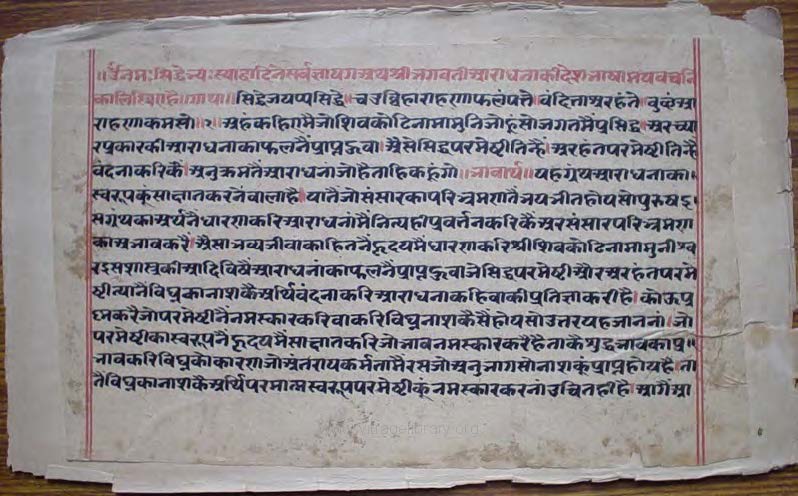 ॥ उँनमः सिद्धेभ्यः स्याद्वादिने सर्वज्ञाय ग अथ श्री भगवती आराधना की देश भाषामय वचनि
का लिखिए है ॥ गाथा ॥ सिद्धे जयप्पसिद्धे चउव्विहाराहणाफलं पत्ते वंदित्ता अरहंते वुछं आ
राहणा कमसो ॥ १ ॥ अहं कहिए मै जो शिवकोटिनामा मुनि जो हूं सो जगत मैं प्रसिद्ध अर च्या
र प्रकार की आराधना का फल नैं प्राप्त हूवा औसे सिद्ध परमेष्टी तिन्है अरहंत परमेष्टी तिन्है
वंदना करि कैं अनुक्रम तैं आराधनां जो है ताहि कहूंगो ॥ भावार्थ ॥ यह ग्रंथ आराधना का
स्वरूपकूं साक्षात करनें वाला है यातै जो संसार का परिभ्रमण तैं भयभीत होय सो पुरुष इ
स ग्रंथ का अर्थ नै धारण करि आराधनां मैं नित्य ही प्रवर्त्तन करि कैं अर संसार परिभ्रमण
का अभाव करैं औसा भव्य जीवा का हित नैं हृदय मैं धारण करि श्री शिवकोटिनामा मुनीश्व
र इस शास्त्र की आदि विषैं आराधनां का फल नैं प्राप्त हूवा जे सिद्ध परमेष्टी और अरहंत परमे
ष्टी त्यानै विघ्न का नाश कै अर्थि वंदना करि आराधना कहिवा की प्रतिज्ञा करी है कोऊ प्र
श्न करै जो परमेष्टी नै नमस्कार करिवा करि विघ्न नाश कैसै होय सो उत्तर यह जाननां जो
परमेष्टी का स्वरूप नैं हृदय मैं साक्षात करि जो भाव नमस्कार करै है ता कै शुद्ध भाव का प्र
भाव करि विघ्न को कारण जो अंतराय कर्म ता मै रस जो अनुभाग सो नाश कूं प्राप्त होय है ता
तैं विघ्न का नाश कै अर्थि परमात्म स्वरूप परमेष्टी कूं नमस्कार करनां उचित ही है आगैं आ